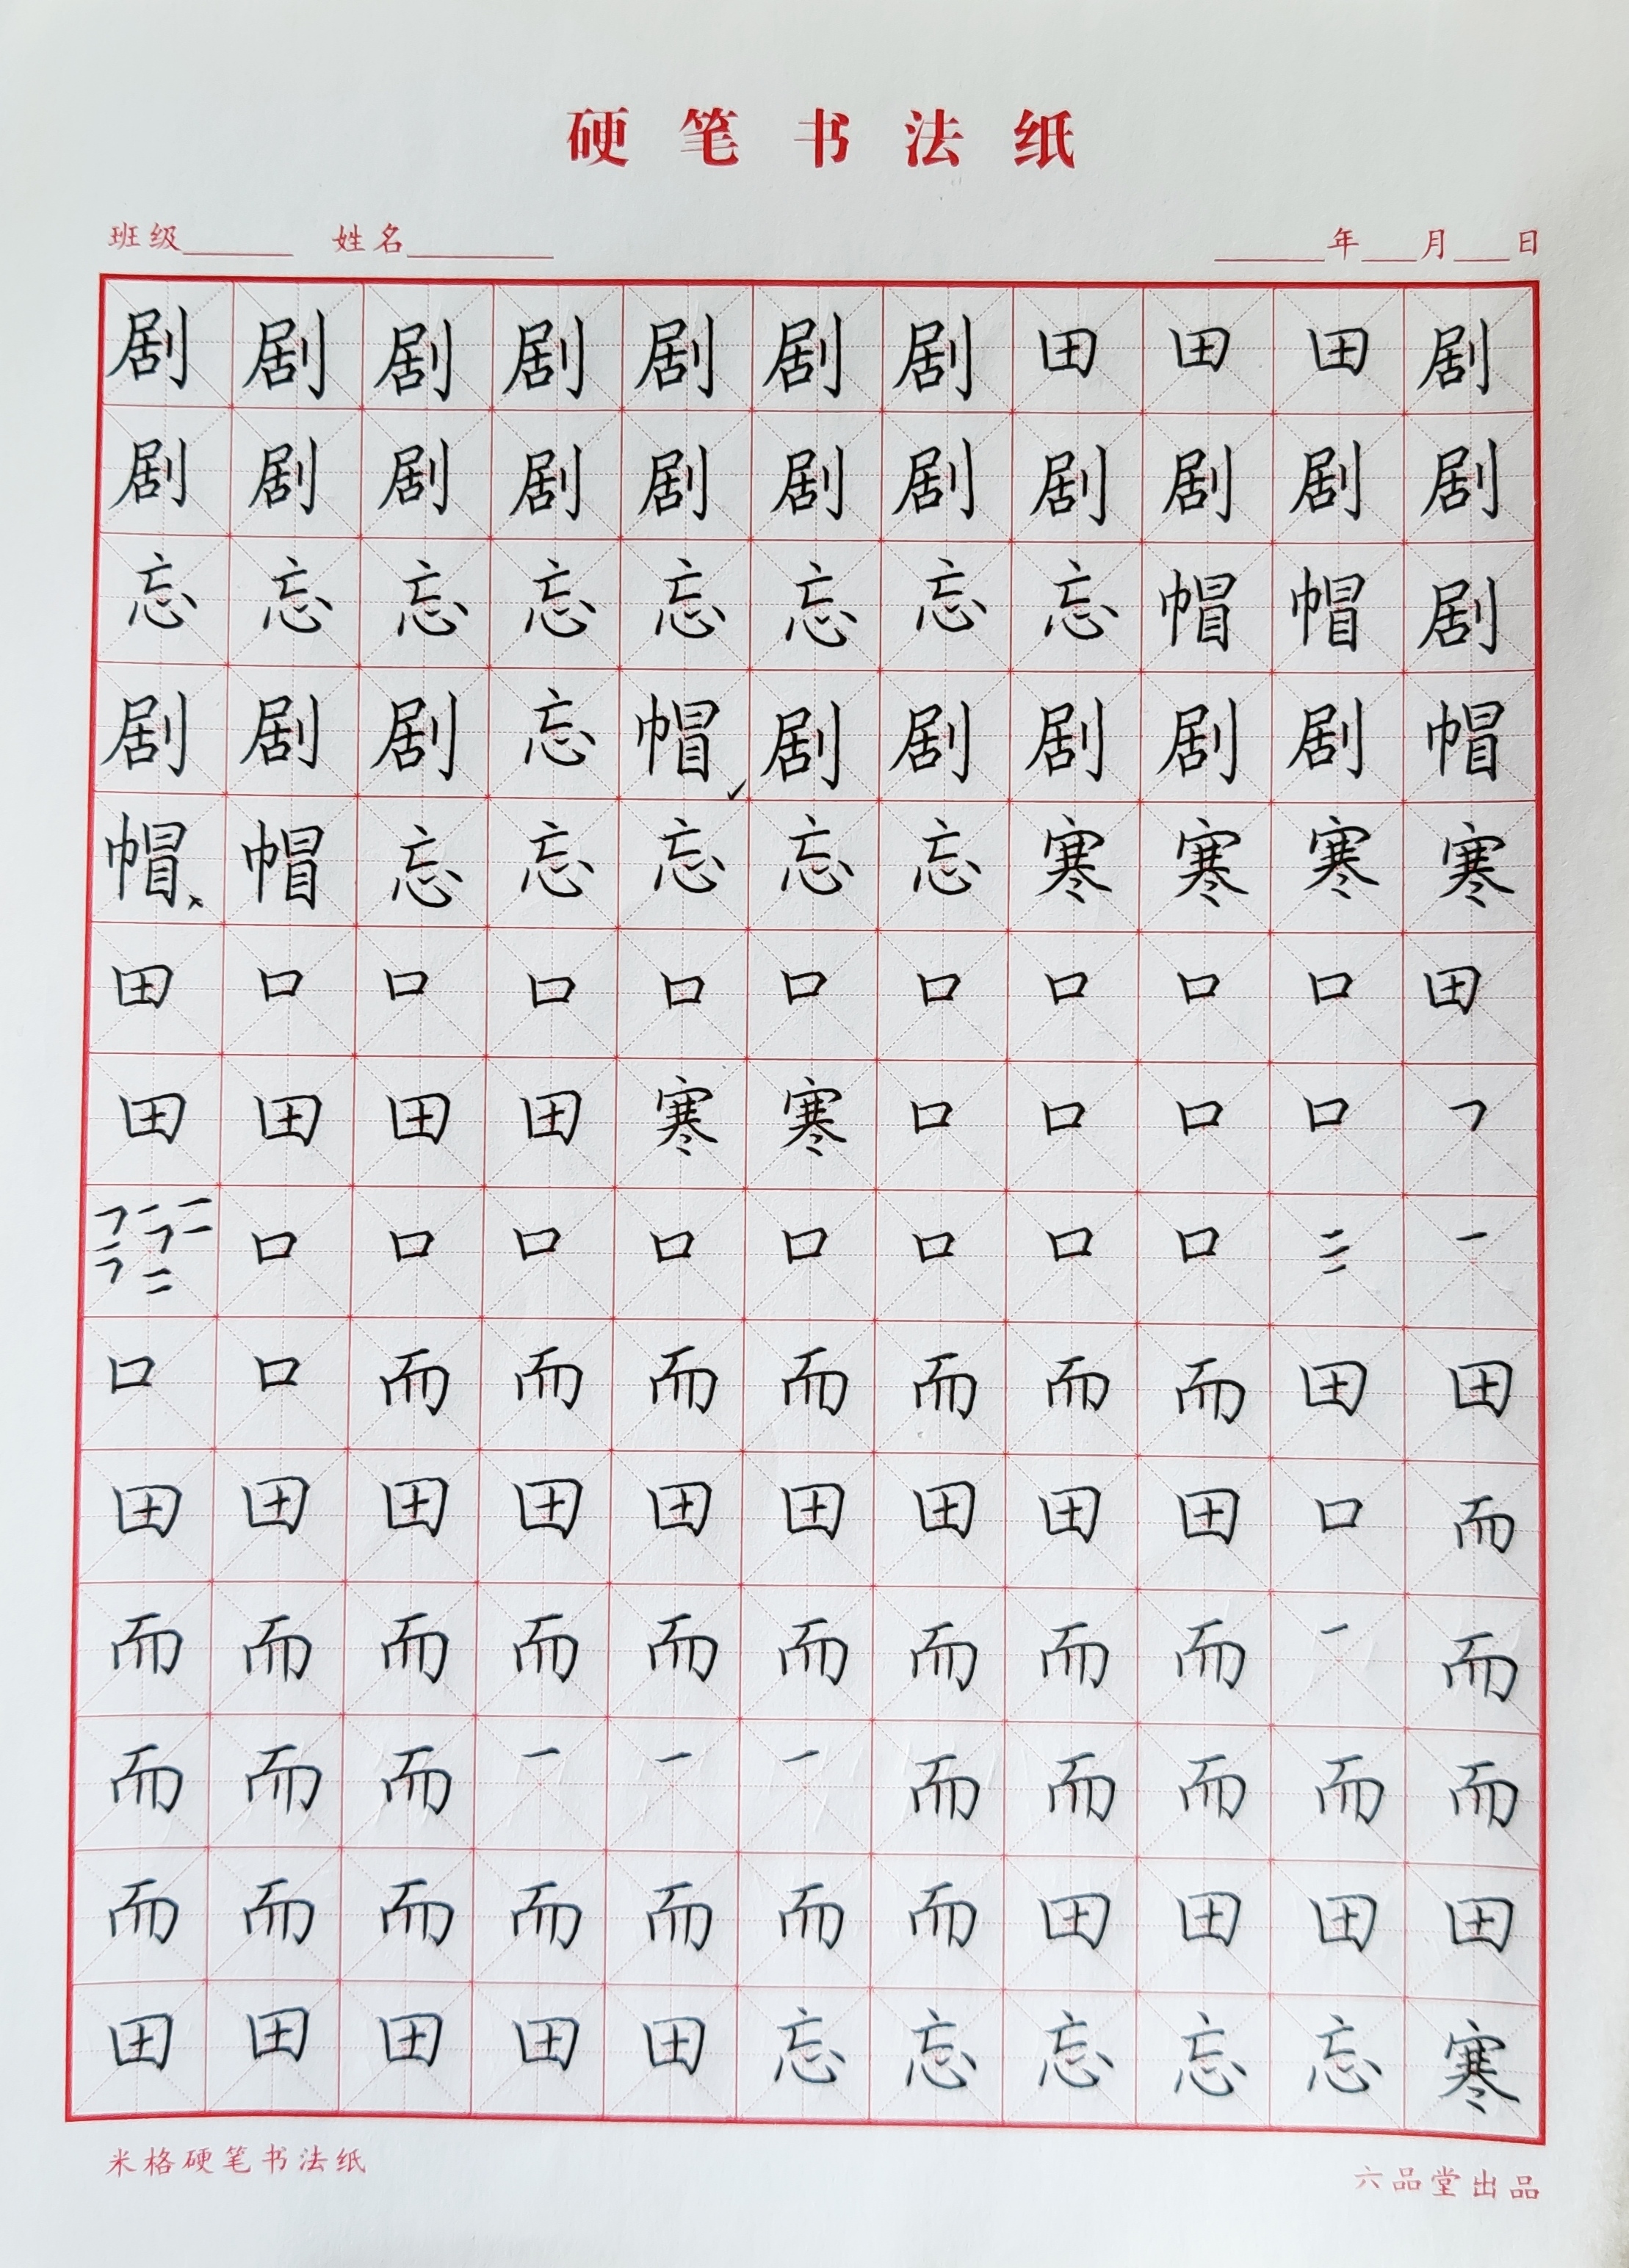 硬笔书法纸
班级______ 姓名________ ______年___月___日
剧剧剧剧剧剧剧田田田剧
剧剧剧剧剧剧剧剧剧剧剧
忘忘忘忘忘忘忘忘帽帽剧
剧剧剧忘帽剧剧剧剧剧帽
帽帽忘忘忘忘忘寒寒寒寒
田口口口口口口口口口田
田田田田寒寒口口口口
口口口口口口口口一
口口而而而而而而而田田
田田田田田田田田田口而
而而而而而而而而而一而
而而而一一一而而而而而
而而而而而而而田田田田
田田田田田忘忘忘忘忘寒
米格硬笔书法纸 六品堂出品